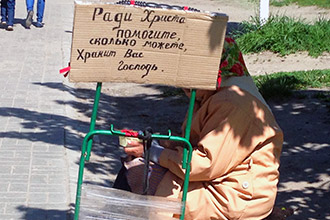 Ради Христа
помогите,
сколько можете,
Хранит Вас
Господь.